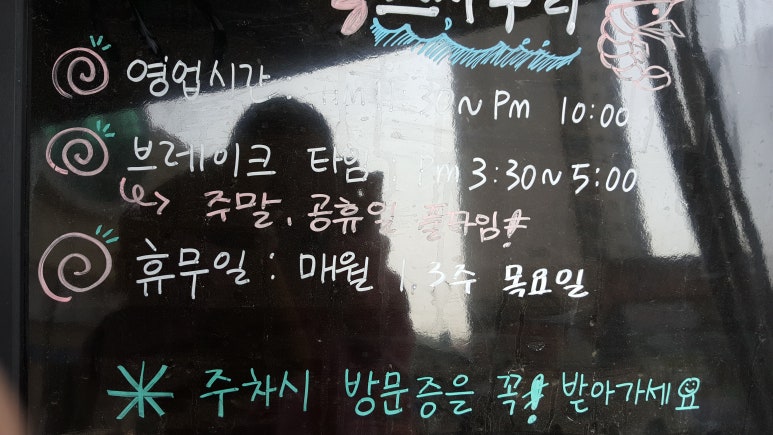 영업시간 :30~Pm 10:00
브레이크 타임 : Pm 3:30~5:00
주말, 공휴일 풀타임!
휴무일 : 매월 1, 3주 목요일
주차시 방문증을 꼭! 받아가세요